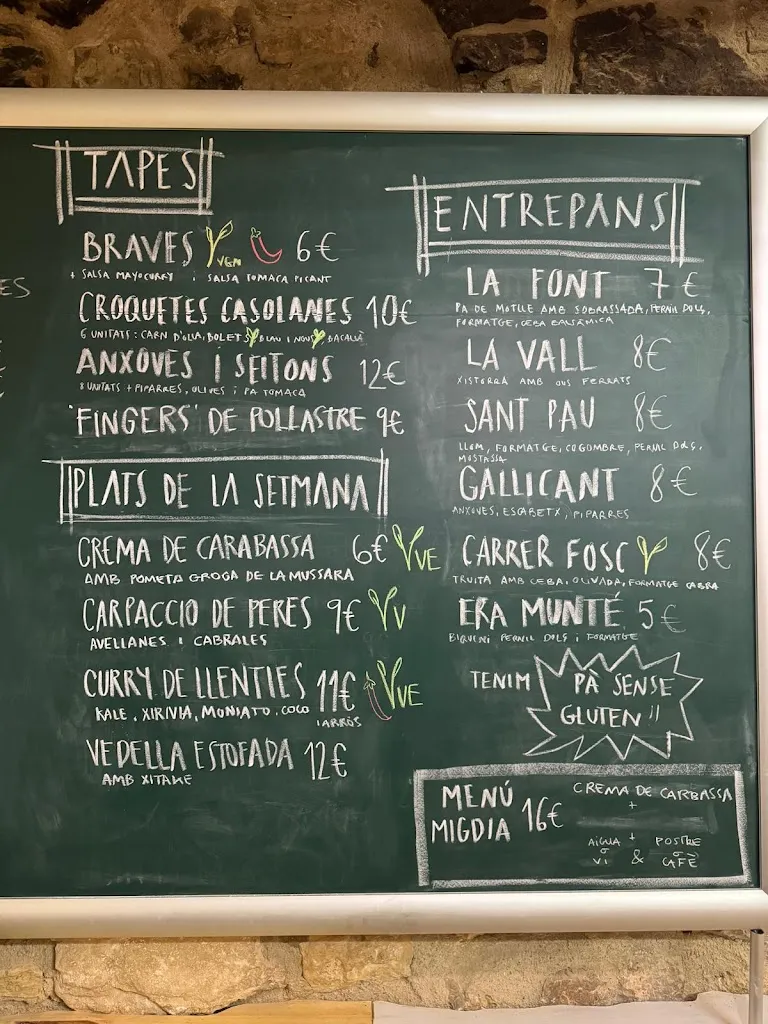 TAPES
BRAVES VGN 6€
+ SALSA MAYOCURRY I SALSA TOMACA PICANT
CROQUETES CASOLANES 10€
6 UNITATS: CARN D'OLLA, BOLETS BLAU I NOUS BACALLÀ
ANXOVES I SEITONS 12€
8 UNITATS + PIPARRES, OLIVES I PA TOMACA
'FINGERS' DE POLLASTRE 9€
PLATS DE LA SETMANA
CREMA DE CARABASSA 6€ VE
AMB POMETA GROGA DE LA MUSSARA
CARPACCIO DE PERES 9€ V
AVELLANES I CABRALES
CURRY DE LLENTIES 11€ VE
KALE, XIRIVIA, MONIATO, COCO I ARRÒS
VEDELLA ESTOFADA 12€
AMB XITAKE
ES
ENTREPANS
LA FONT 7€
PA DE MOTLLE AMB SOBRASSADA, PERNIL DOLÇ,
FORMATGE, CEBA BALSÀMICA
LA VALL 8€
XISTORRA AMB OUS FERRATS
SANT PAU 8€
LLOM, FORMATGE, COGOMBRE, PERNIL DOLÇ,
MOSTASSA
GALLICANT 8€
ANXOVES, ESCABETX, PIPARRES
CARRER FOSC 8€
TRUITA AMB CEBA, OLIVADA, FORMATGE CABRA
ERA MUNTÉ 5€
BIQUINI PERNIL DOLÇ I FORMATGE
TENIM PÀ SENSE
GLUTEN!!
MENÚ
MIGDIA 16€
CREMA DE CARBASSA
+
AIGUA + POSTRE
O O
VI & CAFÈ